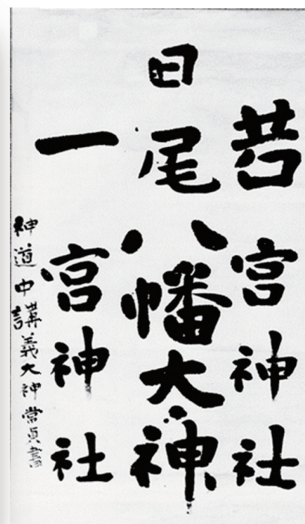 若宮神社
日尾八幡大神
一宮神社
神道中講義大神常貞書